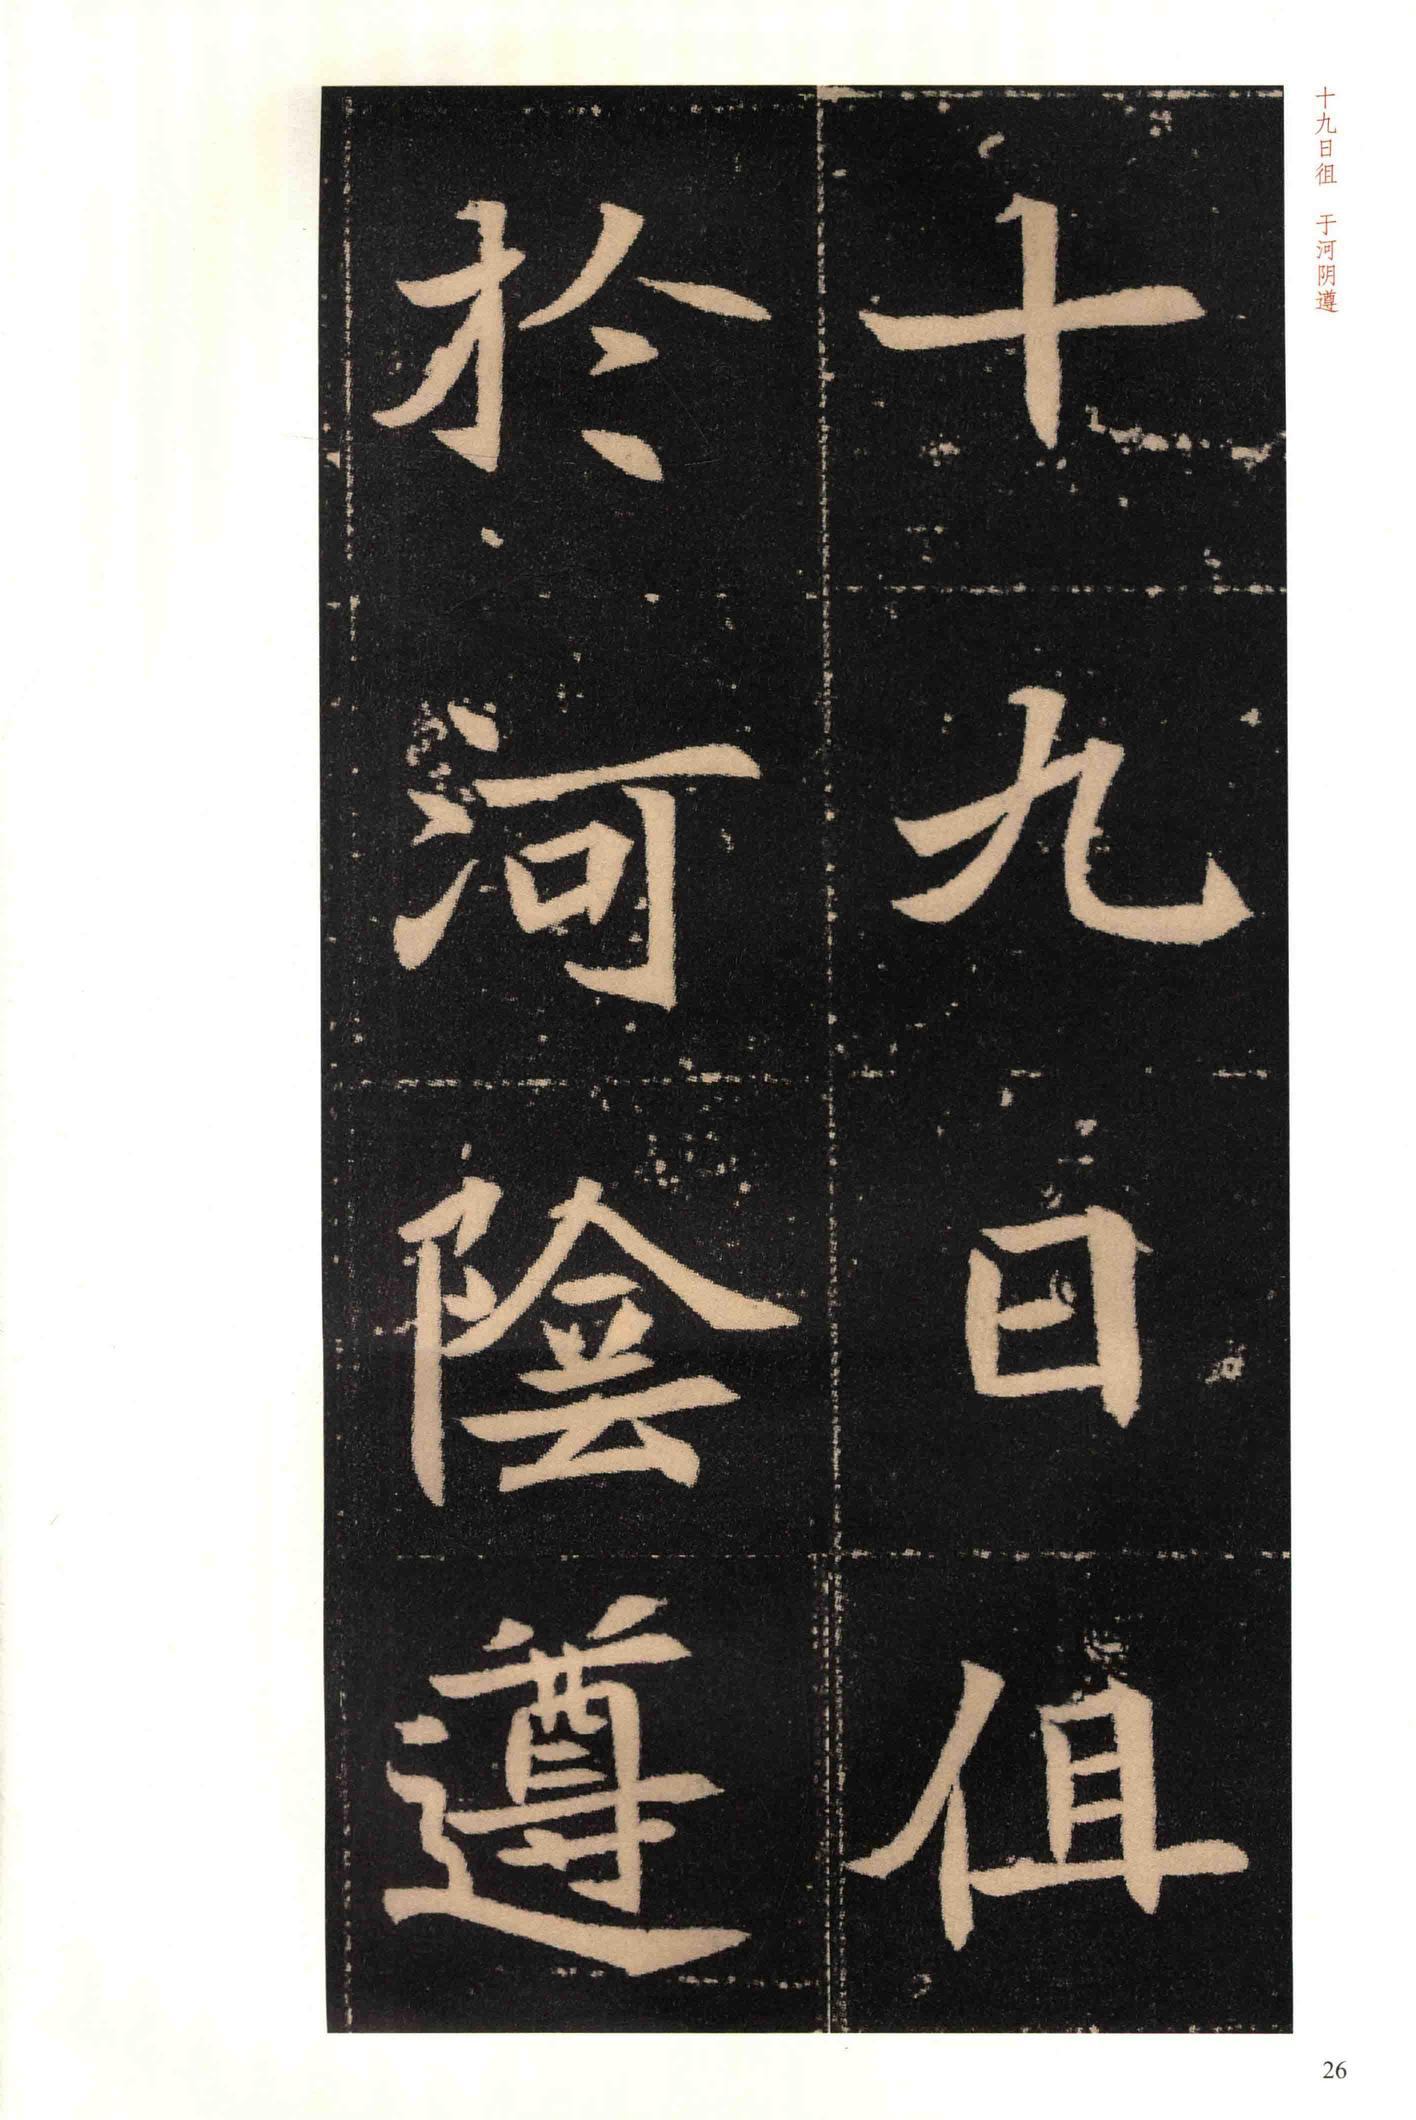 十九日徂　于河阴遵
十九日徂
於河陰遵
26